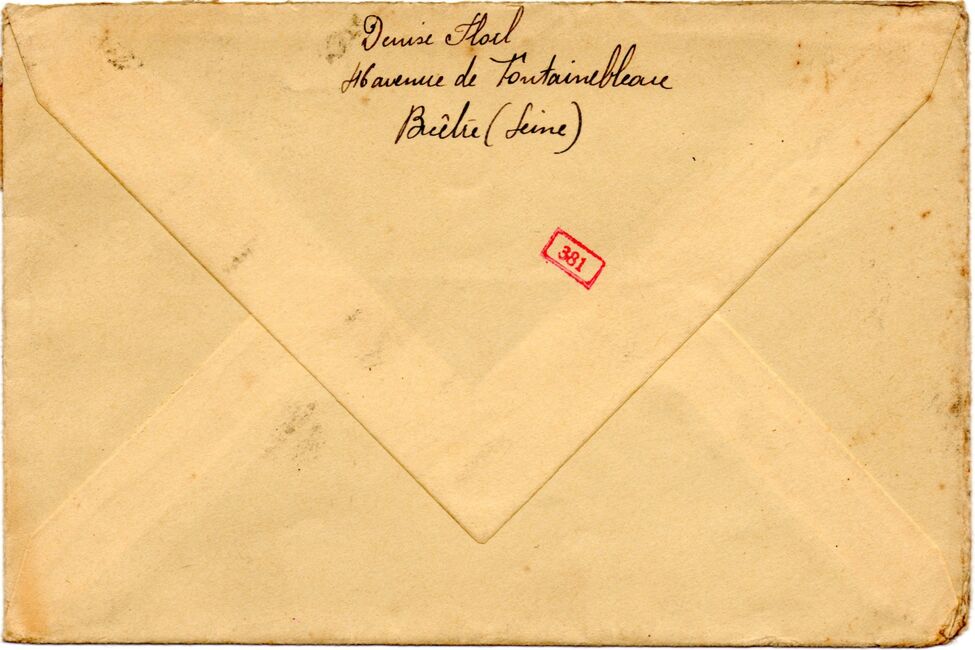 Denise
46 avenue de Fontainebleau
Bicêtre (Seine)
381